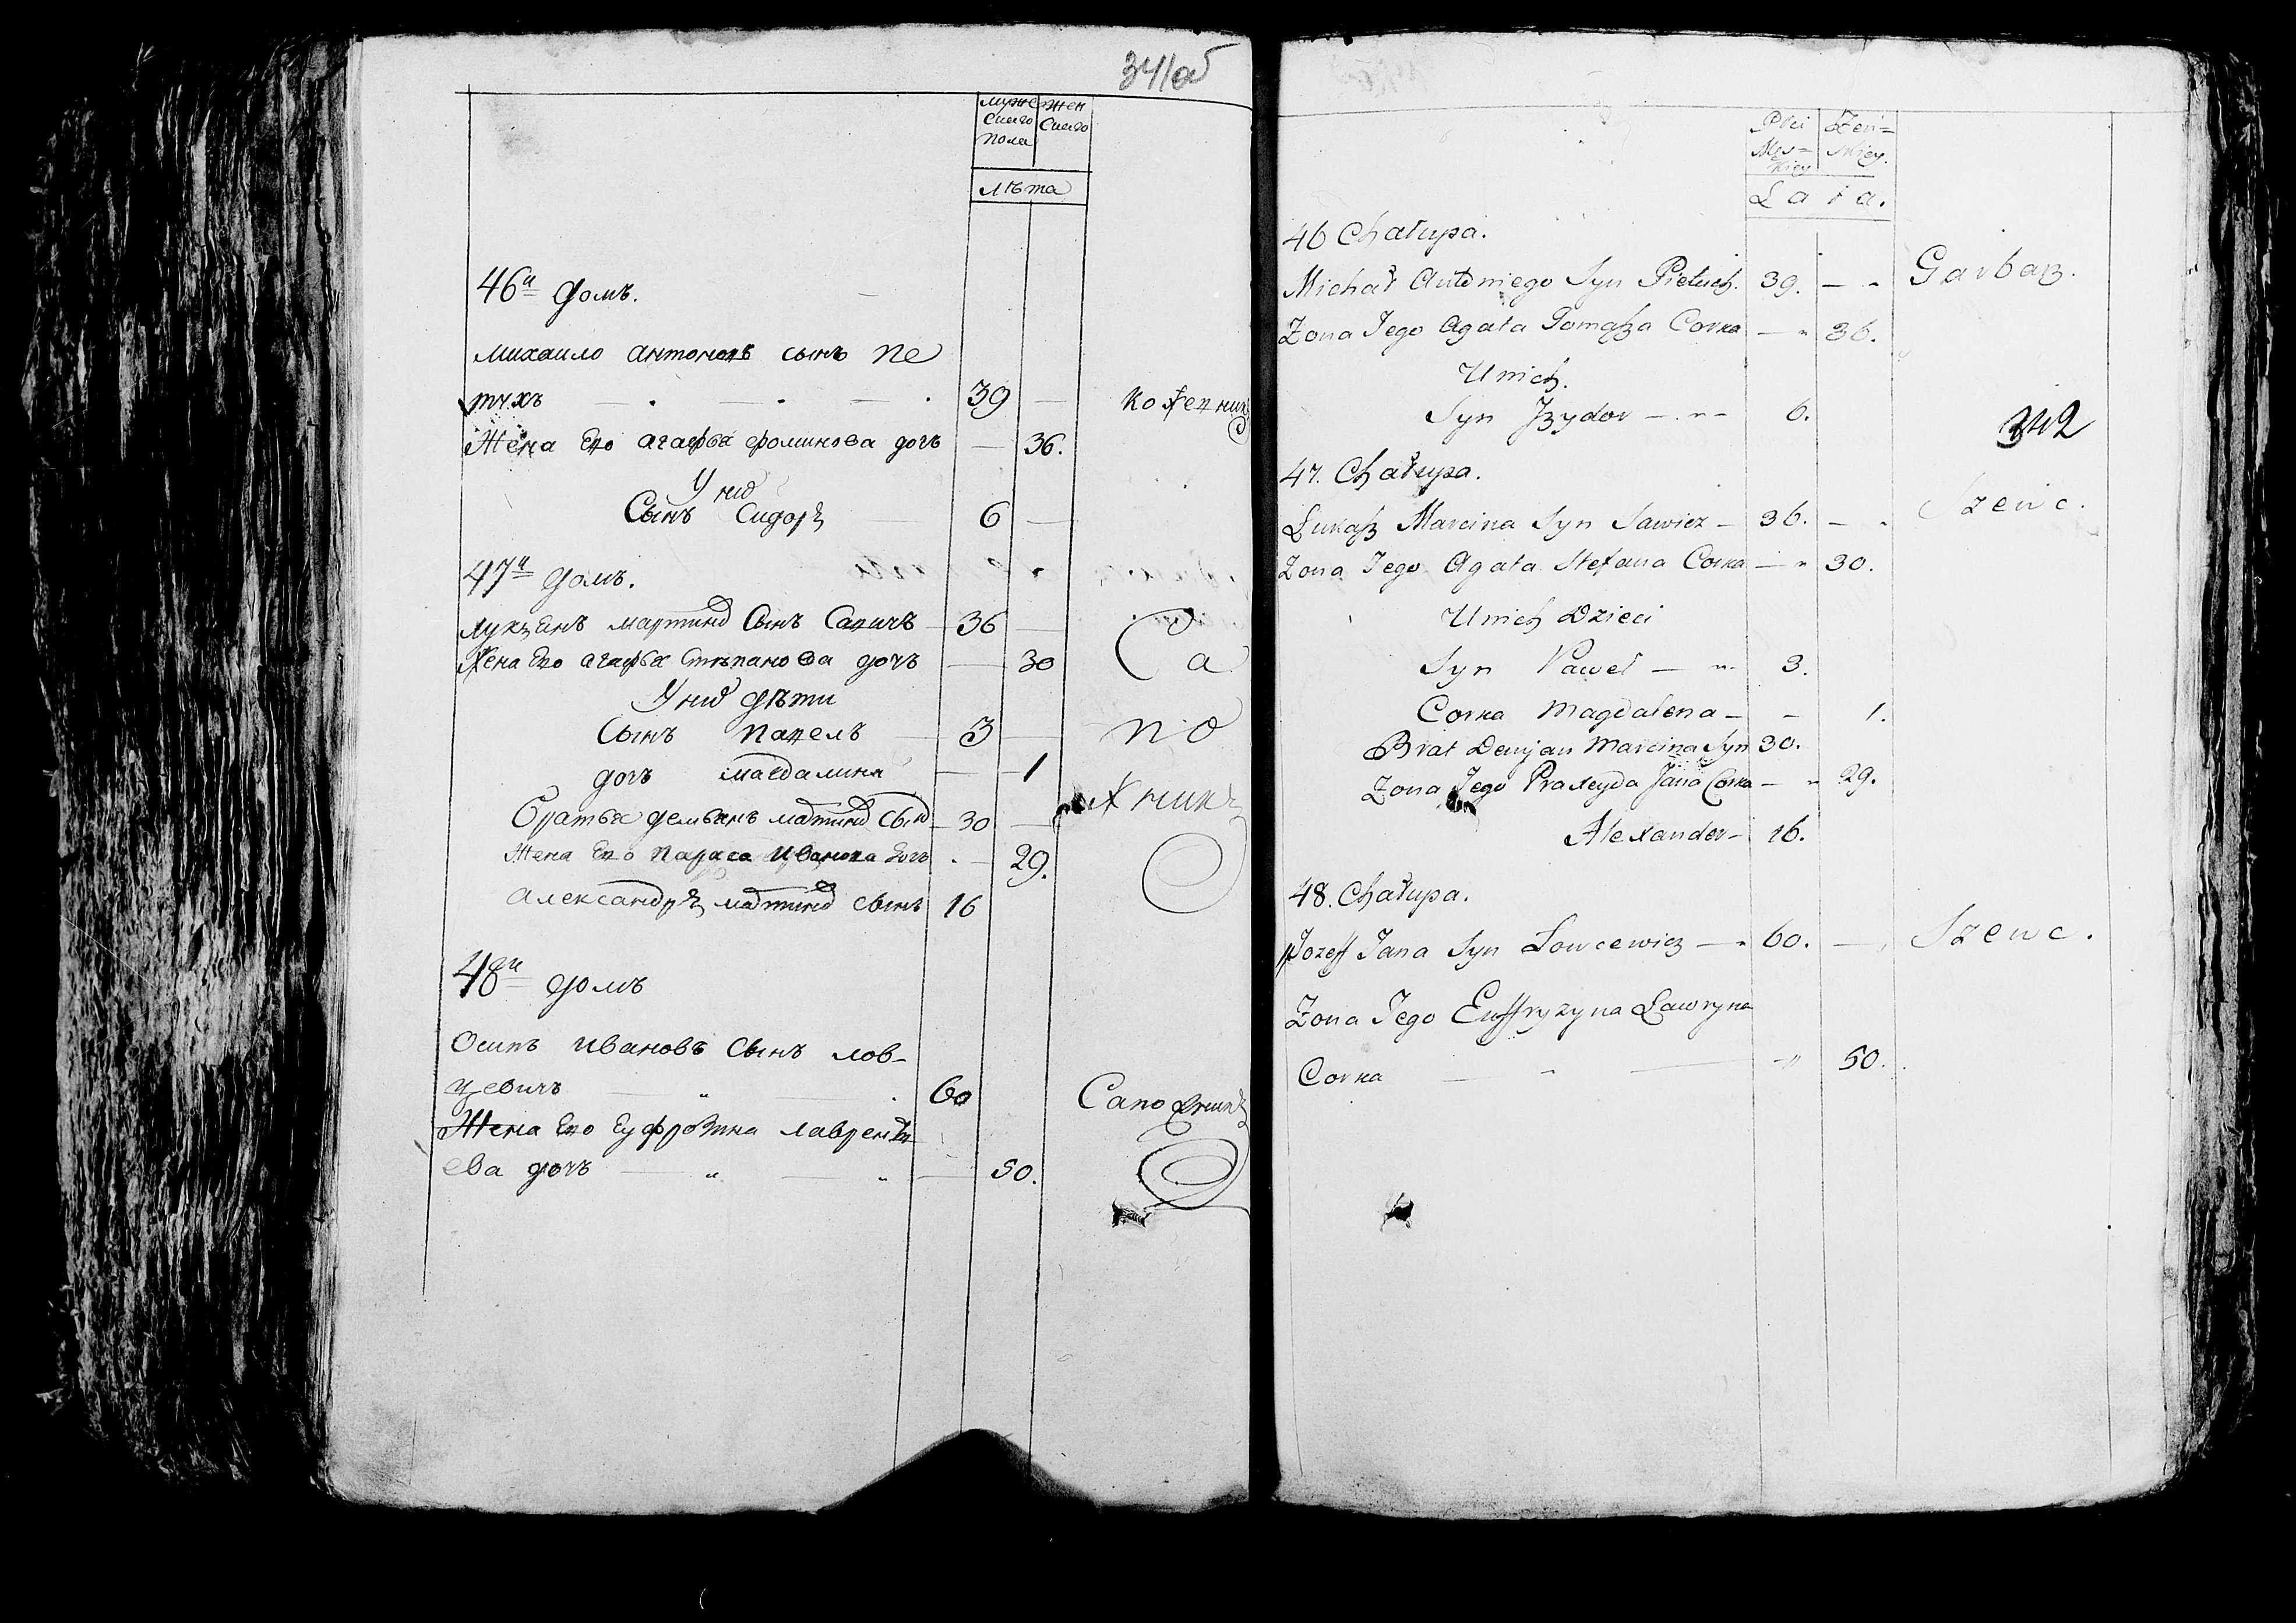 341об
мужс жен
скаго скаго
пола
лѣта
46й домъ.
михаило антоновъ сынъ пе
тухъ 39 — кожевникъ
Жена Его агафья фоминова дочь — 36.
У них
Сынъ Сидоръ 6 —
47й домъ.
мартинов Сынъ Савичъ — 36 —
Жена Его агафья Степанова дочь — 30 Са
У них дѣти
Сынъ павелъ 3 — по
дочь магдалина — 1
Братья демьянъ мартинов сын — 30 — жникъ
Жена Его параса Иванова дочь — 29.
александръ мартинов сынъ 16
48й домъ
Осипъ ивановъ Сынъ лов-
цевичъ 60 Сапожникъ
Жена Его Еуфрозина лавренть
ева дочь — 50.
Płci Żeń=
Męs= skiey.
kiey
Lata.
46 Chałupa.
Michał Antoniego Syn Pietuch. 39. — Garbarz.
Zona Jego Agata Tomasza Corka — 36.
U nich.
Syn Jzydor — 6.
342
47. Chałupa.
Łukasz Marcina Syn Sawicz — 36. — Szewc.
Zona Jego Agata Stefana Corka — 30.
U nich Dzieci
Syn Paweł — 3.
Corka Magdalena — 1.
Brat Demjan Marcina Syn 30.
Zona Jego Praxeyda Jana Corka — 29.
Alexander — 16.
48. Chałupa.
Jozeff Jana Syn Łowcewicz — 60. — Szewc.
Zona Jego Euffryzyna Ławryna
Corka — 50.